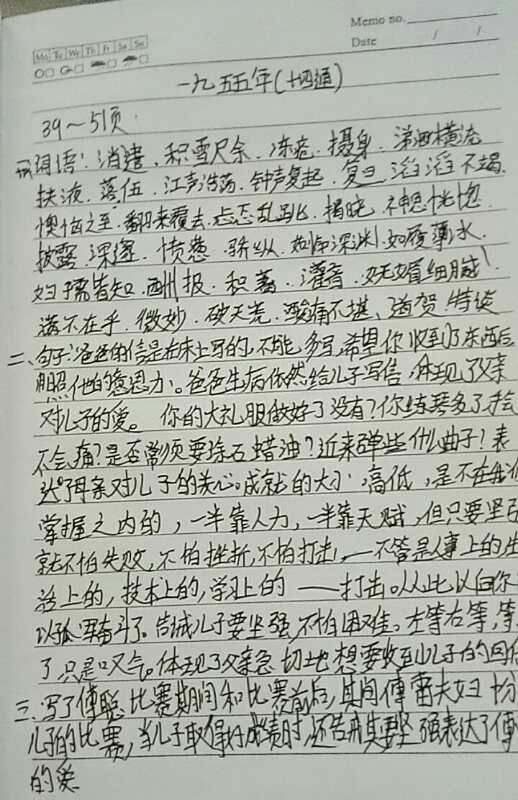 Memo no.
Mo Tu We Th Fr Sa Su
Date / /
一九五五年(十四通)
39~51页.
一、词语:消逮、积雪尺余、冻疮、摄身、涕泗横流
扶液、落伍、江声浩荡、钟声复起、复旦、滔滔不竭
懊恼之至、翻来覆去、忐忑乱、揭晓、心神恍惚
披露、深邃、愤懑、骄纵、如临深渊、如履薄水、
妇孺皆知、酬报、积蓄、灌音、细腻
满不在乎、微妙、破天荒、酸痛不堪、道贺、特谈
二、句子:爸爸的信是在床上写的,不能多写,希望你收到了东西后
照他的意思办。爸爸生病依然给儿子写信,体现了父亲
对儿子的爱。你的大礼服做好了没有?你练琴多了手会
不会痛?是否常须要涂石蜡油?近来弹些什么曲子?表
达了母亲对儿子的关心。成就的大小,高低,是不在我们
掌握之内的,一半靠人力,一半靠天赋,但只要坚强
就不怕失败,不怕挫折,不怕打击,—不管是人事上的生
活上的,技术上的,学习上的——打击。从此以后你
以孤军奋斗了。告诫儿子要坚强,不怕困难。左等右等,等
了只是叹气。体现了父亲急切地想要收到儿子的回信
三、写了傅聪比赛期间和比赛前后,其间傅雷夫妇
儿子的比赛,当儿子取得好成绩时,还告戒其要坚强表达了傅
的爱